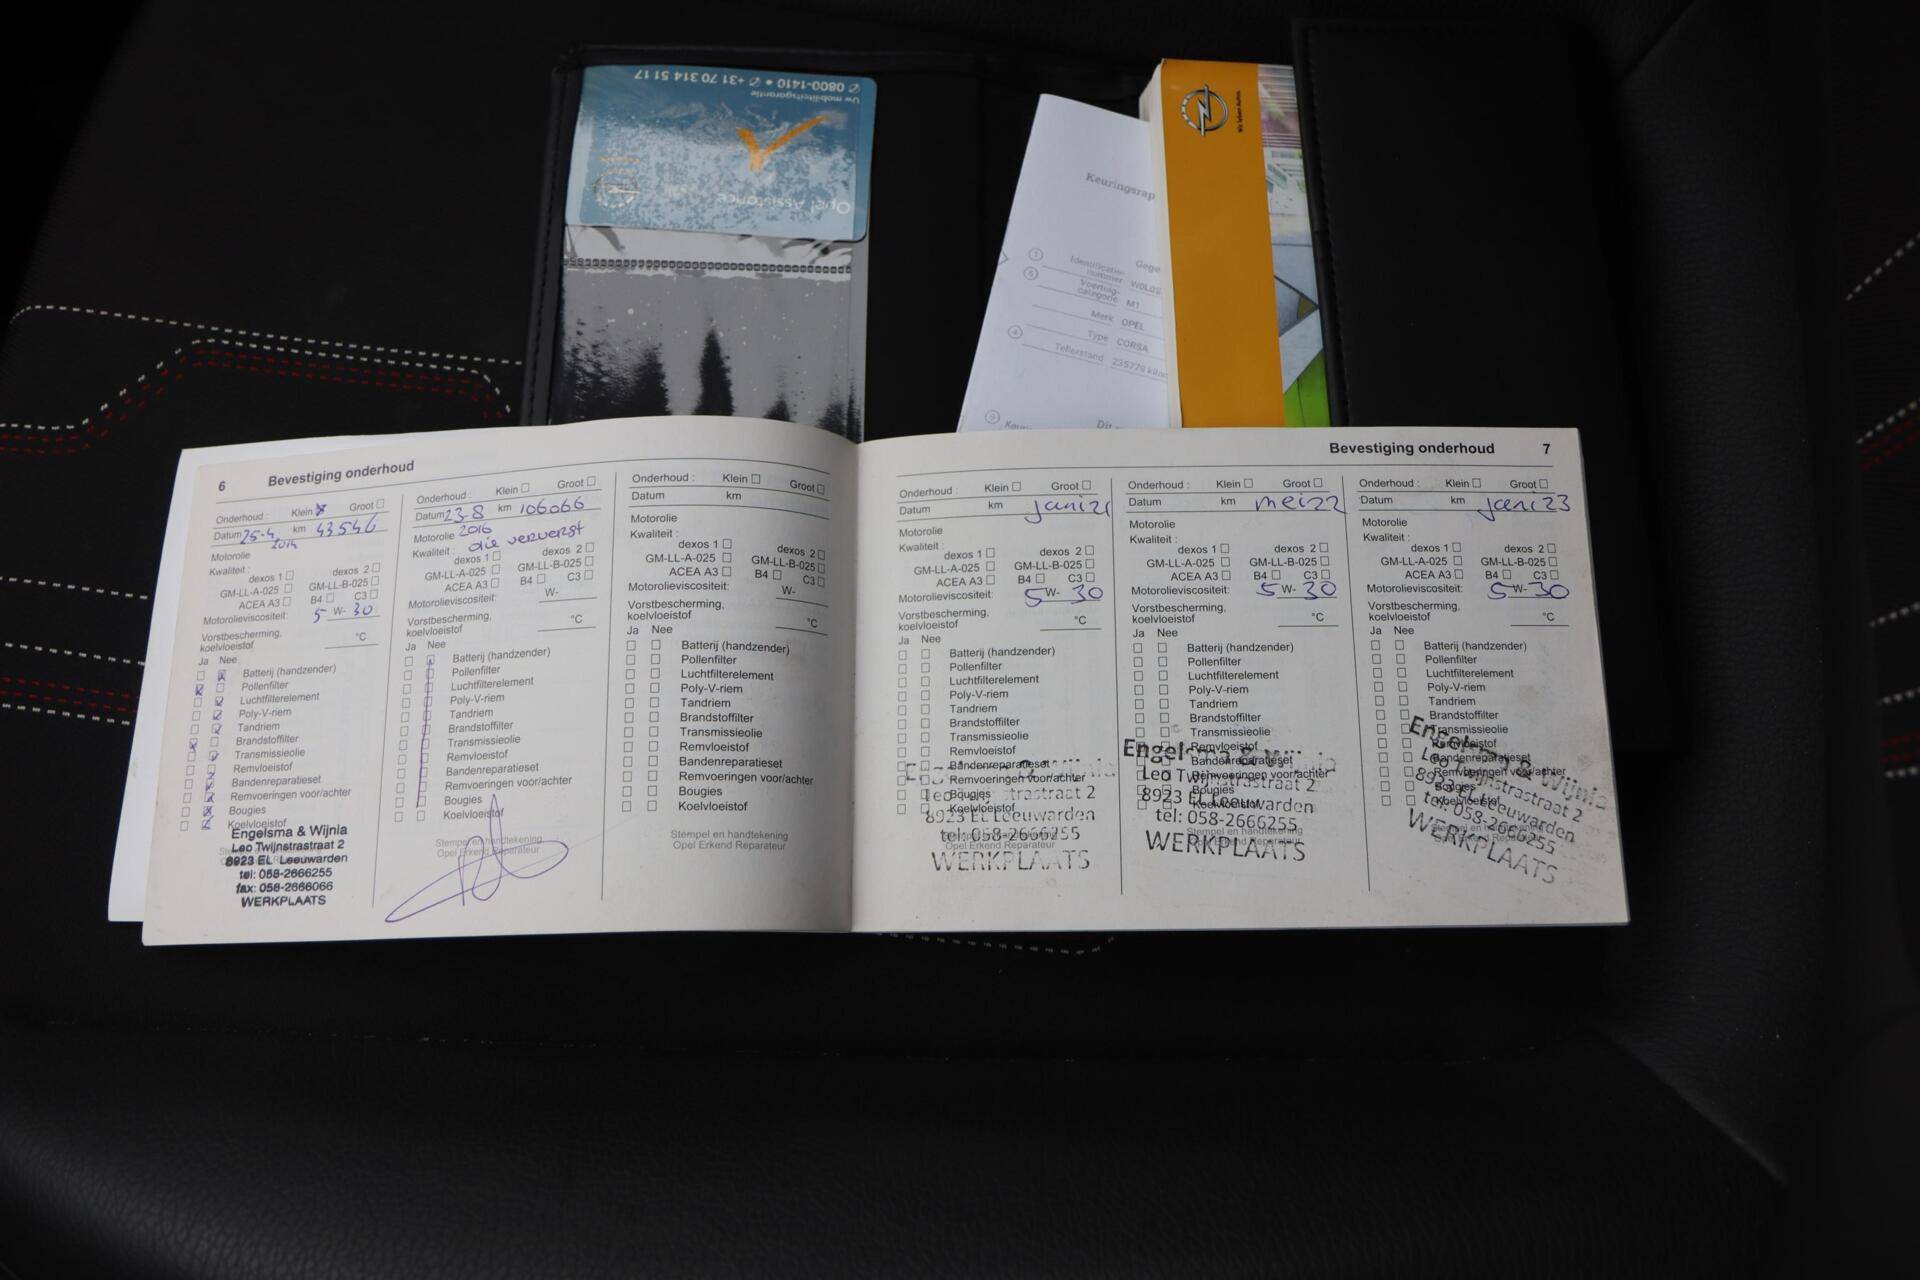 ✆ 0800-1410 • ✆ +31 70 314 51 17
Uw mobiliteitsgarantie
Opel Assistance
Wir leben Autos.
Keuringsrap
Gege
1 Identificatie-
nummer W0L0S
5 Voertuig-
categorie M1
Merk OPEL
Type CORSA
4 Tellerstand 235779 kilo
9
Dit
6 Bevestiging onderhoud
Onderhoud : Klein Groot
Datum 25-4 2014 km 43546
Motorolie
Kwaliteit :
dexos 1 dexos 2
GM-LL-A-025 GM-LL-B-025
ACEA A3 B4 C3
Motorolieviscositeit: 5 W- 30
Vorstbescherming,
koelvloeistof °C
Ja Nee
Batterij (handzender)
Pollenfilter
Luchtfilterelement
Poly-V-riem
Tandriem
Brandstoffilter
Transmissieolie
Remvloeistof
Bandenreparatieset
Remvoeringen voor/achter
Bougies
Koelvloeistof
Engelsma & Wijnia
Leo Twijnstrastraat 2
8923 EL Leeuwarden
tel: 058-2666255
fax: 058-2666066
WERKPLAATS
Onderhoud : Klein Groot
Datum 23-8 km 106066
Motorolie 2016
Kwaliteit : olie ververst
dexos 1 dexos 2
GM-LL-A-025 GM-LL-B-025
ACEA A3 B4 C3
Motorolieviscositeit: W-
Vorstbescherming,
koelvloeistof °C
Ja Nee
Batterij (handzender)
Pollenfilter
Luchtfilterelement
Poly-V-riem
Tandriem
Brandstoffilter
Transmissieolie
Remvloeistof
Bandenreparatieset
Remvoeringen voor/achter
Bougies
Koelvloeistof
Stempel en handtekening
Opel Erkend Reparateur
Onderhoud : Klein Groot
Datum km
Motorolie
Kwaliteit :
dexos 1 dexos 2
GM-LL-A-025 GM-LL-B-025
ACEA A3 B4 C3
Motorolieviscositeit: W-
Vorstbescherming,
koelvloeistof °C
Ja Nee
Batterij (handzender)
Pollenfilter
Luchtfilterelement
Poly-V-riem
Tandriem
Brandstoffilter
Transmissieolie
Remvloeistof
Bandenreparatieset
Remvoeringen voor/achter
Bougies
Koelvloeistof
Stempel en handtekening
Opel Erkend Reparateur
Bevestiging onderhoud 7
Onderhoud : Klein Groot
Datum km juni 21
Motorolie
Kwaliteit :
dexos 1 dexos 2
GM-LL-A-025 GM-LL-B-025
ACEA A3 B4 C3
Motorolieviscositeit: 5 W- 30
Vorstbescherming,
koelvloeistof °C
Ja Nee
Batterij (handzender)
Pollenfilter
Luchtfilterelement
Poly-V-riem
Tandriem
Brandstoffilter
Transmissieolie
Remvloeistof
Bandenreparatieset
Remvoeringen voor/achter
Bougies
Koelvloeistof
8923 EL Leeuwarden
tel: 058-2666255
Opel Erkend Reparateur
WERKPLAATS
Onderhoud : Klein Groot
Datum km mei 22
Motorolie
Kwaliteit :
dexos 1 dexos 2
GM-LL-A-025 GM-LL-B-025
ACEA A3 B4 C3
Motorolieviscositeit: 5 W- 30
Vorstbescherming,
koelvloeistof °C
Ja Nee
Batterij (handzender)
Pollenfilter
Luchtfilterelement
Poly-V-riem
Tandriem
Brandstoffilter
Transmissieolie
Remvloeistof
Bandenreparatieset
Remvoeringen voor/achter
Bougies
Koelvloeistof
Engelsma & Wijnia
Leo Twijnstrastraat 2
8923 EL Leeuwarden
tel: 058-2666255
Stempel en handtekening
Opel Erkend Reparateur
WERKPLAATS
Onderhoud : Klein Groot
Datum km juni 23
Motorolie
Kwaliteit :
dexos 1 dexos 2
GM-LL-A-025 GM-LL-B-025
ACEA A3 B4 C3
Motorolieviscositeit: 5 W- 30
Vorstbescherming,
koelvloeistof °C
Ja Nee
Batterij (handzender)
Pollenfilter
Luchtfilterelement
Poly-V-riem
Tandriem
Brandstoffilter
Transmissieolie
Remvloeistof
Bandenreparatieset
Remvoeringen voor/achter
Bougies
Koelvloeistof
Engelsma & Wijnia
Leo Twijnstrastraat 2
8923 EL Leeuwarden
tel: 058-2666255
WERKPLAATS